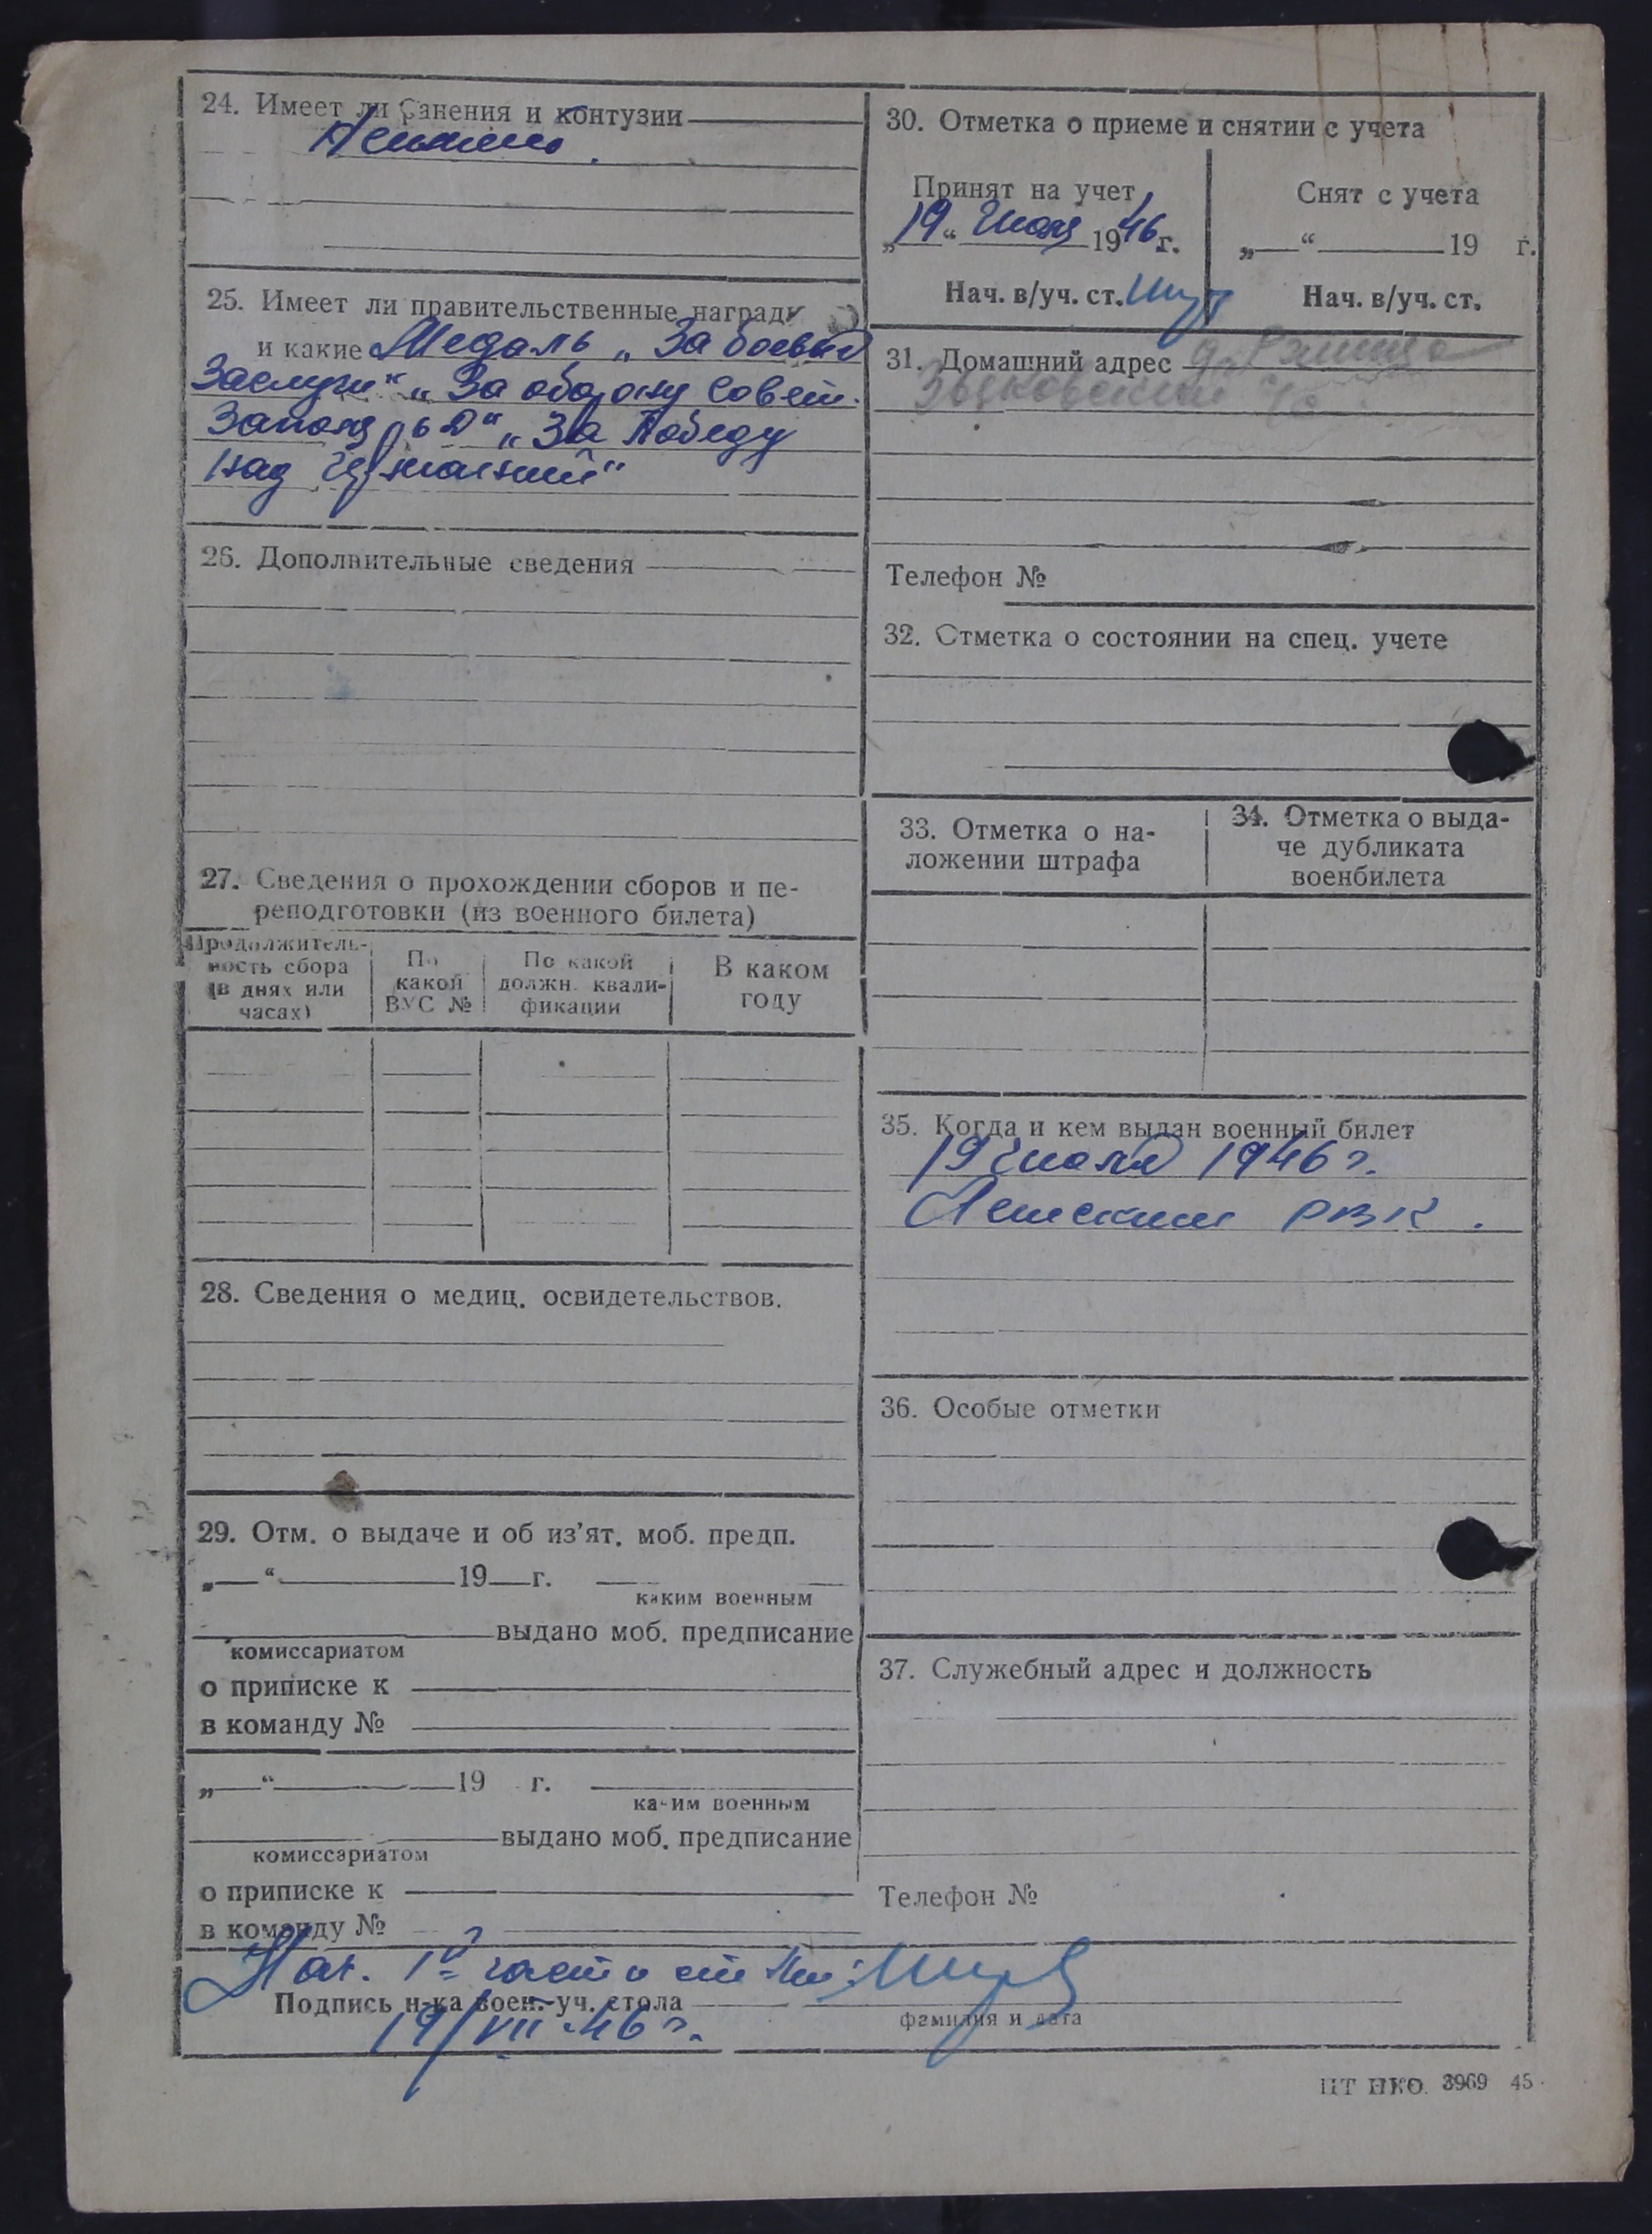 24. Имеет ли ранения и контузии
25. Имеет ли правительственные награды
и какие Медаль „За боевые
Заслуги“ „За оборону Совет.
Заполярья“ „За Победу
над Германией“
26. Дополнительные сведения
27. Сведения о прохождении сборов и пе-
реподготовки (из военного билета)
Продолжитель-
ность сбора
(в днях или
часах)
По
какой
ВУС №
По какой
должн. квали-
фикации
В каком
году
28. Сведения о медиц. освидетельствов.
29. Отм. о выдаче и об из’ят. моб. предп.
„ “ 19 г.
каким военным
выдано моб. предписание
комиссариатом
о приписке к
в команду №
„ “ 19 г.
каким военным
выдано моб. предписание
комиссариатом
о приписке к
в команду №
30. Отметка о приеме и снятии с учета
Принят на учет
„19“ Июля 1946 г.
Нач. в/уч. ст.
Снят с учета
„ “ 19 г.
Нач. в/уч. ст.
31. Домашний адрес
Телефон №
32. Отметка о состоянии на спец. учете
33. Отметка о на-
ложении штрафа
34. Отметка о выда-
че дубликата
военбилета
35. Когда и кем выдан военный билет
19 Июля 1946 г.
РВК.
36. Особые отметки
37. Служебный адрес и должность
Телефон №
Нач. 1й части
Подпись н-ка воен.-уч. стола
фамилия и дата
19/VII-46 г.
ЦТ НКО. 3969 45